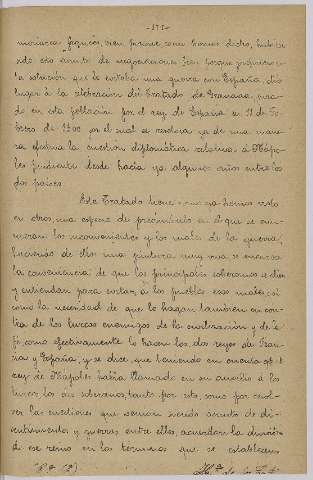 -171-
monarca francés, bien porque como hemos dicho, hubiese
sido esto asunto de negociaciones, bien porque juzgase
la solución que le evitaba una guerra con España, dio
lugar a la celebración del Tratado de Granada,
do en esta población por el rey de España el 11 de No
bre de 1500 por el cual se resolvía ya de una mane
ra efectiva la cuestión diplomática relativa a Nápo
les pendiente desde hacía ya algunos años entre los
dos países.
Este Tratado tiene como ya hemos visto
en otros, una especie de preámbulo en el que se enu
meran los inconvenientes y los males de la guerra,
haciendo de ellos una pintura muy viva se enuncia
la conveniencia de que los principales soberanos se unan
y entiendan para evitar a los pueblos esos males así
como la necesidad de que lo hagan también en con
tra de los turcos enemigos de la civilización y de la
fe como efectivamente lo hacen los dos reyes de Fran
cia y España, y se dice que teniendo en cuenta que el
rey de Nápoles había llamado en su auxilio a los
turcos los dos soberanos, tanto por esto, como por resol
ver las cuestiones que venían siendo asunto de di
sentimientos y guerras entre ellos, acuerdan la división
de ese reino en los términos que se establecen